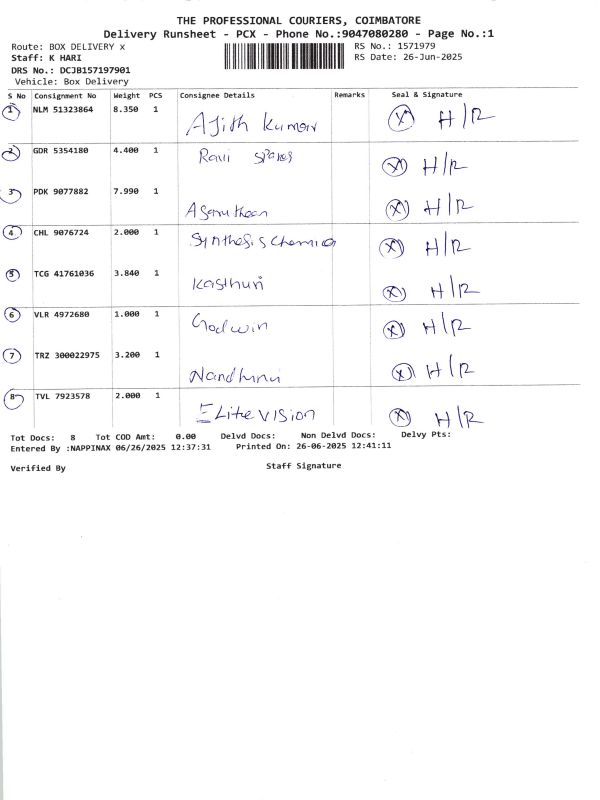 THE PROFESSIONAL COURIERS, COIMBATORE
Delivery Runsheet - PCX - Phone No.:9047080280 - Page No.:1
Route: BOX DELIVERY x RS No.: 1571979
Staff: K HARI RS Date: 26-Jun-2025
DRS No.: DCJB157197901
Vehicle: Box Delivery
S No Consignment No Weight PCS Consignee Details Remarks Seal & Signature
1 NLM 51323864 8.350 1 Ajith Kumar (X) H/R
2 GDR 5354180 4.400 1 Ravi spares (X) H/R
3 PDK 9077882 7.990 1 (X) H/R
4 CHL 9076724 2.000 1 Synthesis chemica (X) H/R
5 TCG 41761036 3.840 1 Kasthuri (X) H/R
6 VLR 4972680 1.000 1 Godwin (X) H/R
7 TRZ 300022975 3.200 1 Nandhini (X) H/R
8 TVL 7923578 2.000 1 ELite VISION (X) H/R
Tot Docs: 8 Tot COD Amt: 0.00 Delvd Docs: Non Delvd Docs: Delvy Pts:
Entered By :NAPPINAX 06/26/2025 12:37:31 Printed On: 26-06-2025 12:41:11
Verified By Staff Signature